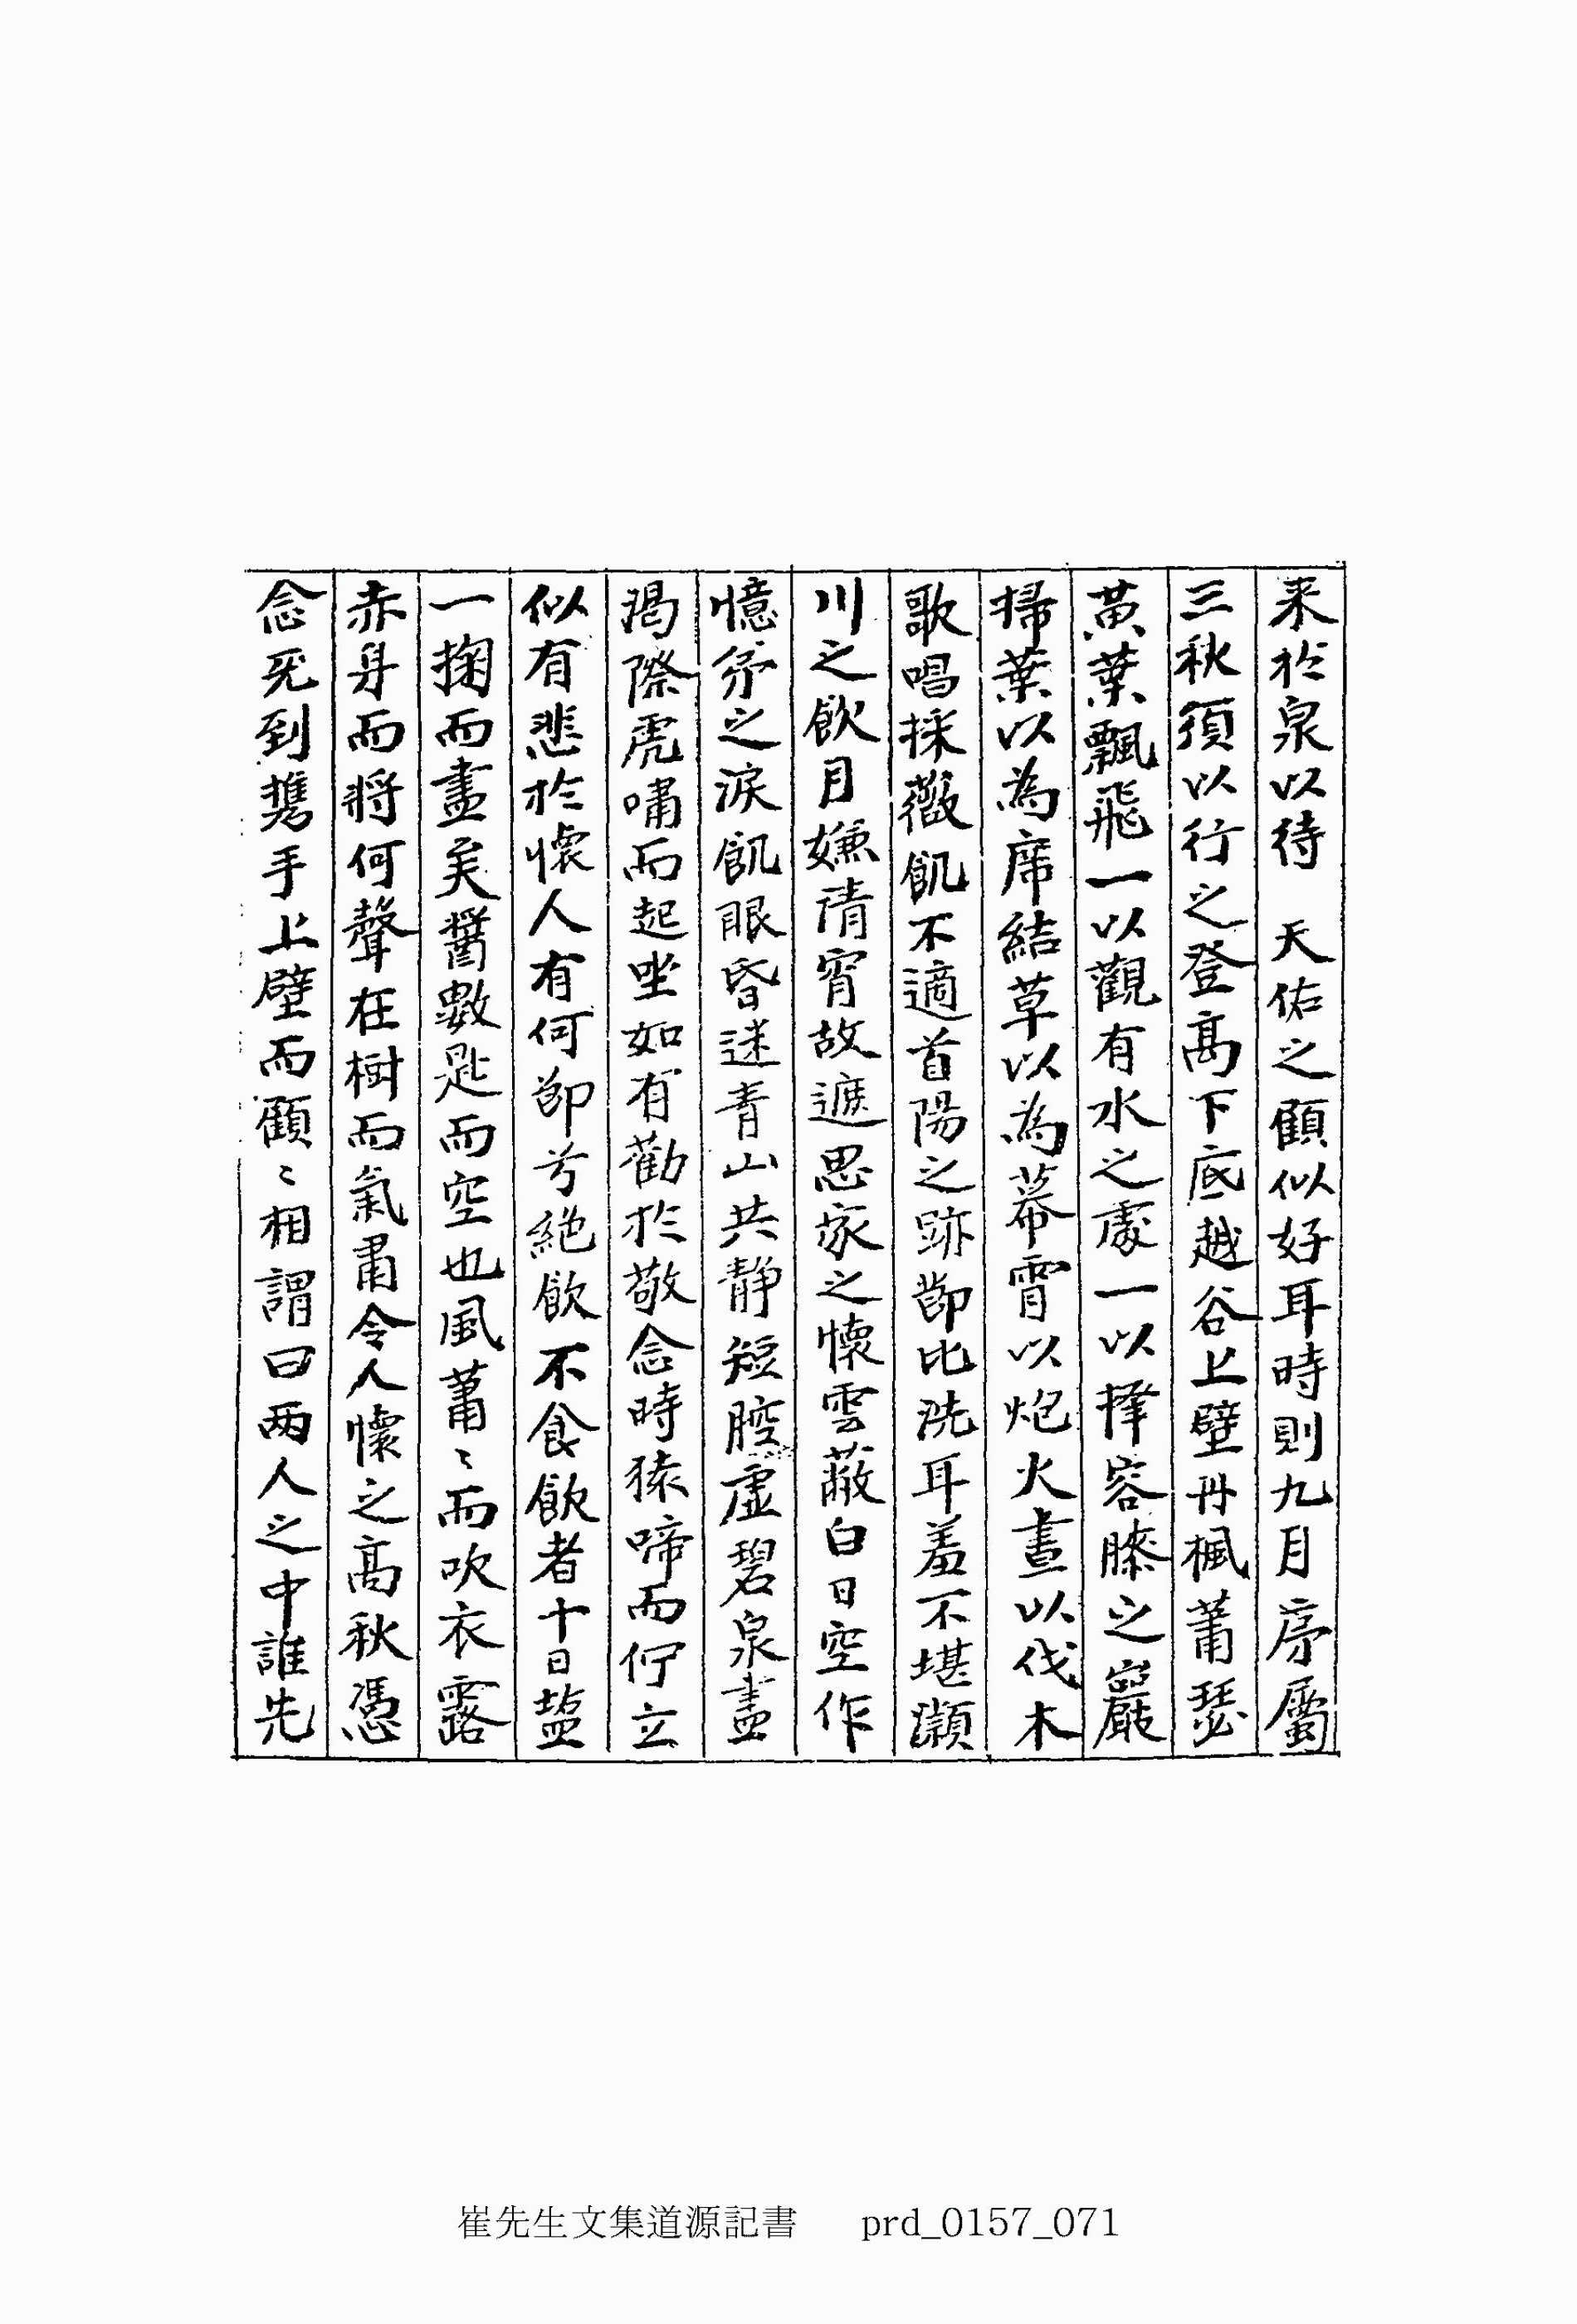 来於泉以待 天佑之顧似好耳時則九月序屬
三秋須以行之登高下底越谷上壁丹楓蕭瑟
黃葉飄飛一以觀有水之處一以擇容膝之巖
掃葉以為席結草以為幕宵以炮火晝以伐木
歌唱採薇飢不適首陽之跡節比洗耳羞不堪瀕
川之飮月嫌清宵故遮思家之懷雲蔽白日空作
憶弟之淚飢眼昏迷青山共静短腔虛碧泉盡
渴際虎嘯而起坐如有勸於敬念時猿啼而佇立
似有悲於懷人有何節兮絶飮不食飮者十日塩
一掬而盡矣醬數匙而空也風蕭〻而吹衣露
赤身而將何聲在樹而氣肅令人懷之高秋憑
念死到携手上壁而顧〻相謂曰两人之中誰先
崔先生文集道源記書 prd_0157_071